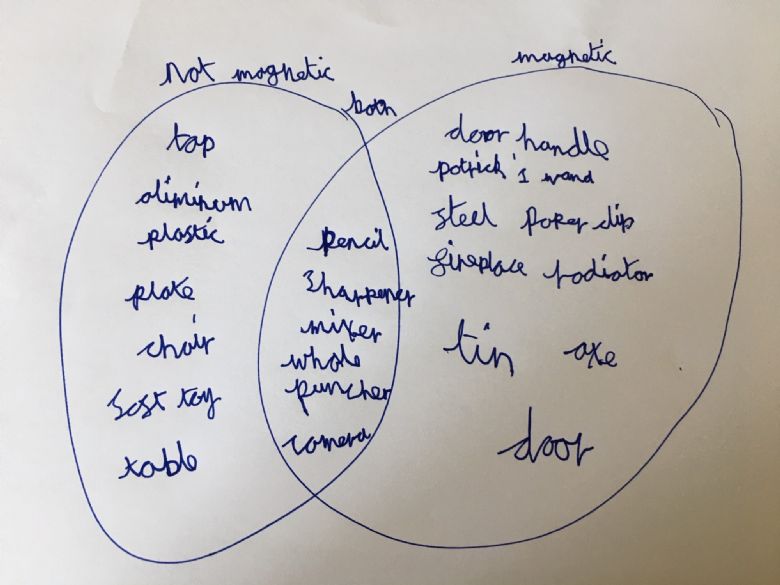 not magnetic
both
magnetic
tap
aliminum
plastic
plate
chair
soft toy
table
pencil
sharpener
mixer
whole
puncher
camera
door handle
patrick's wand
steel paper clip
fireplace radiator
tin axe
door